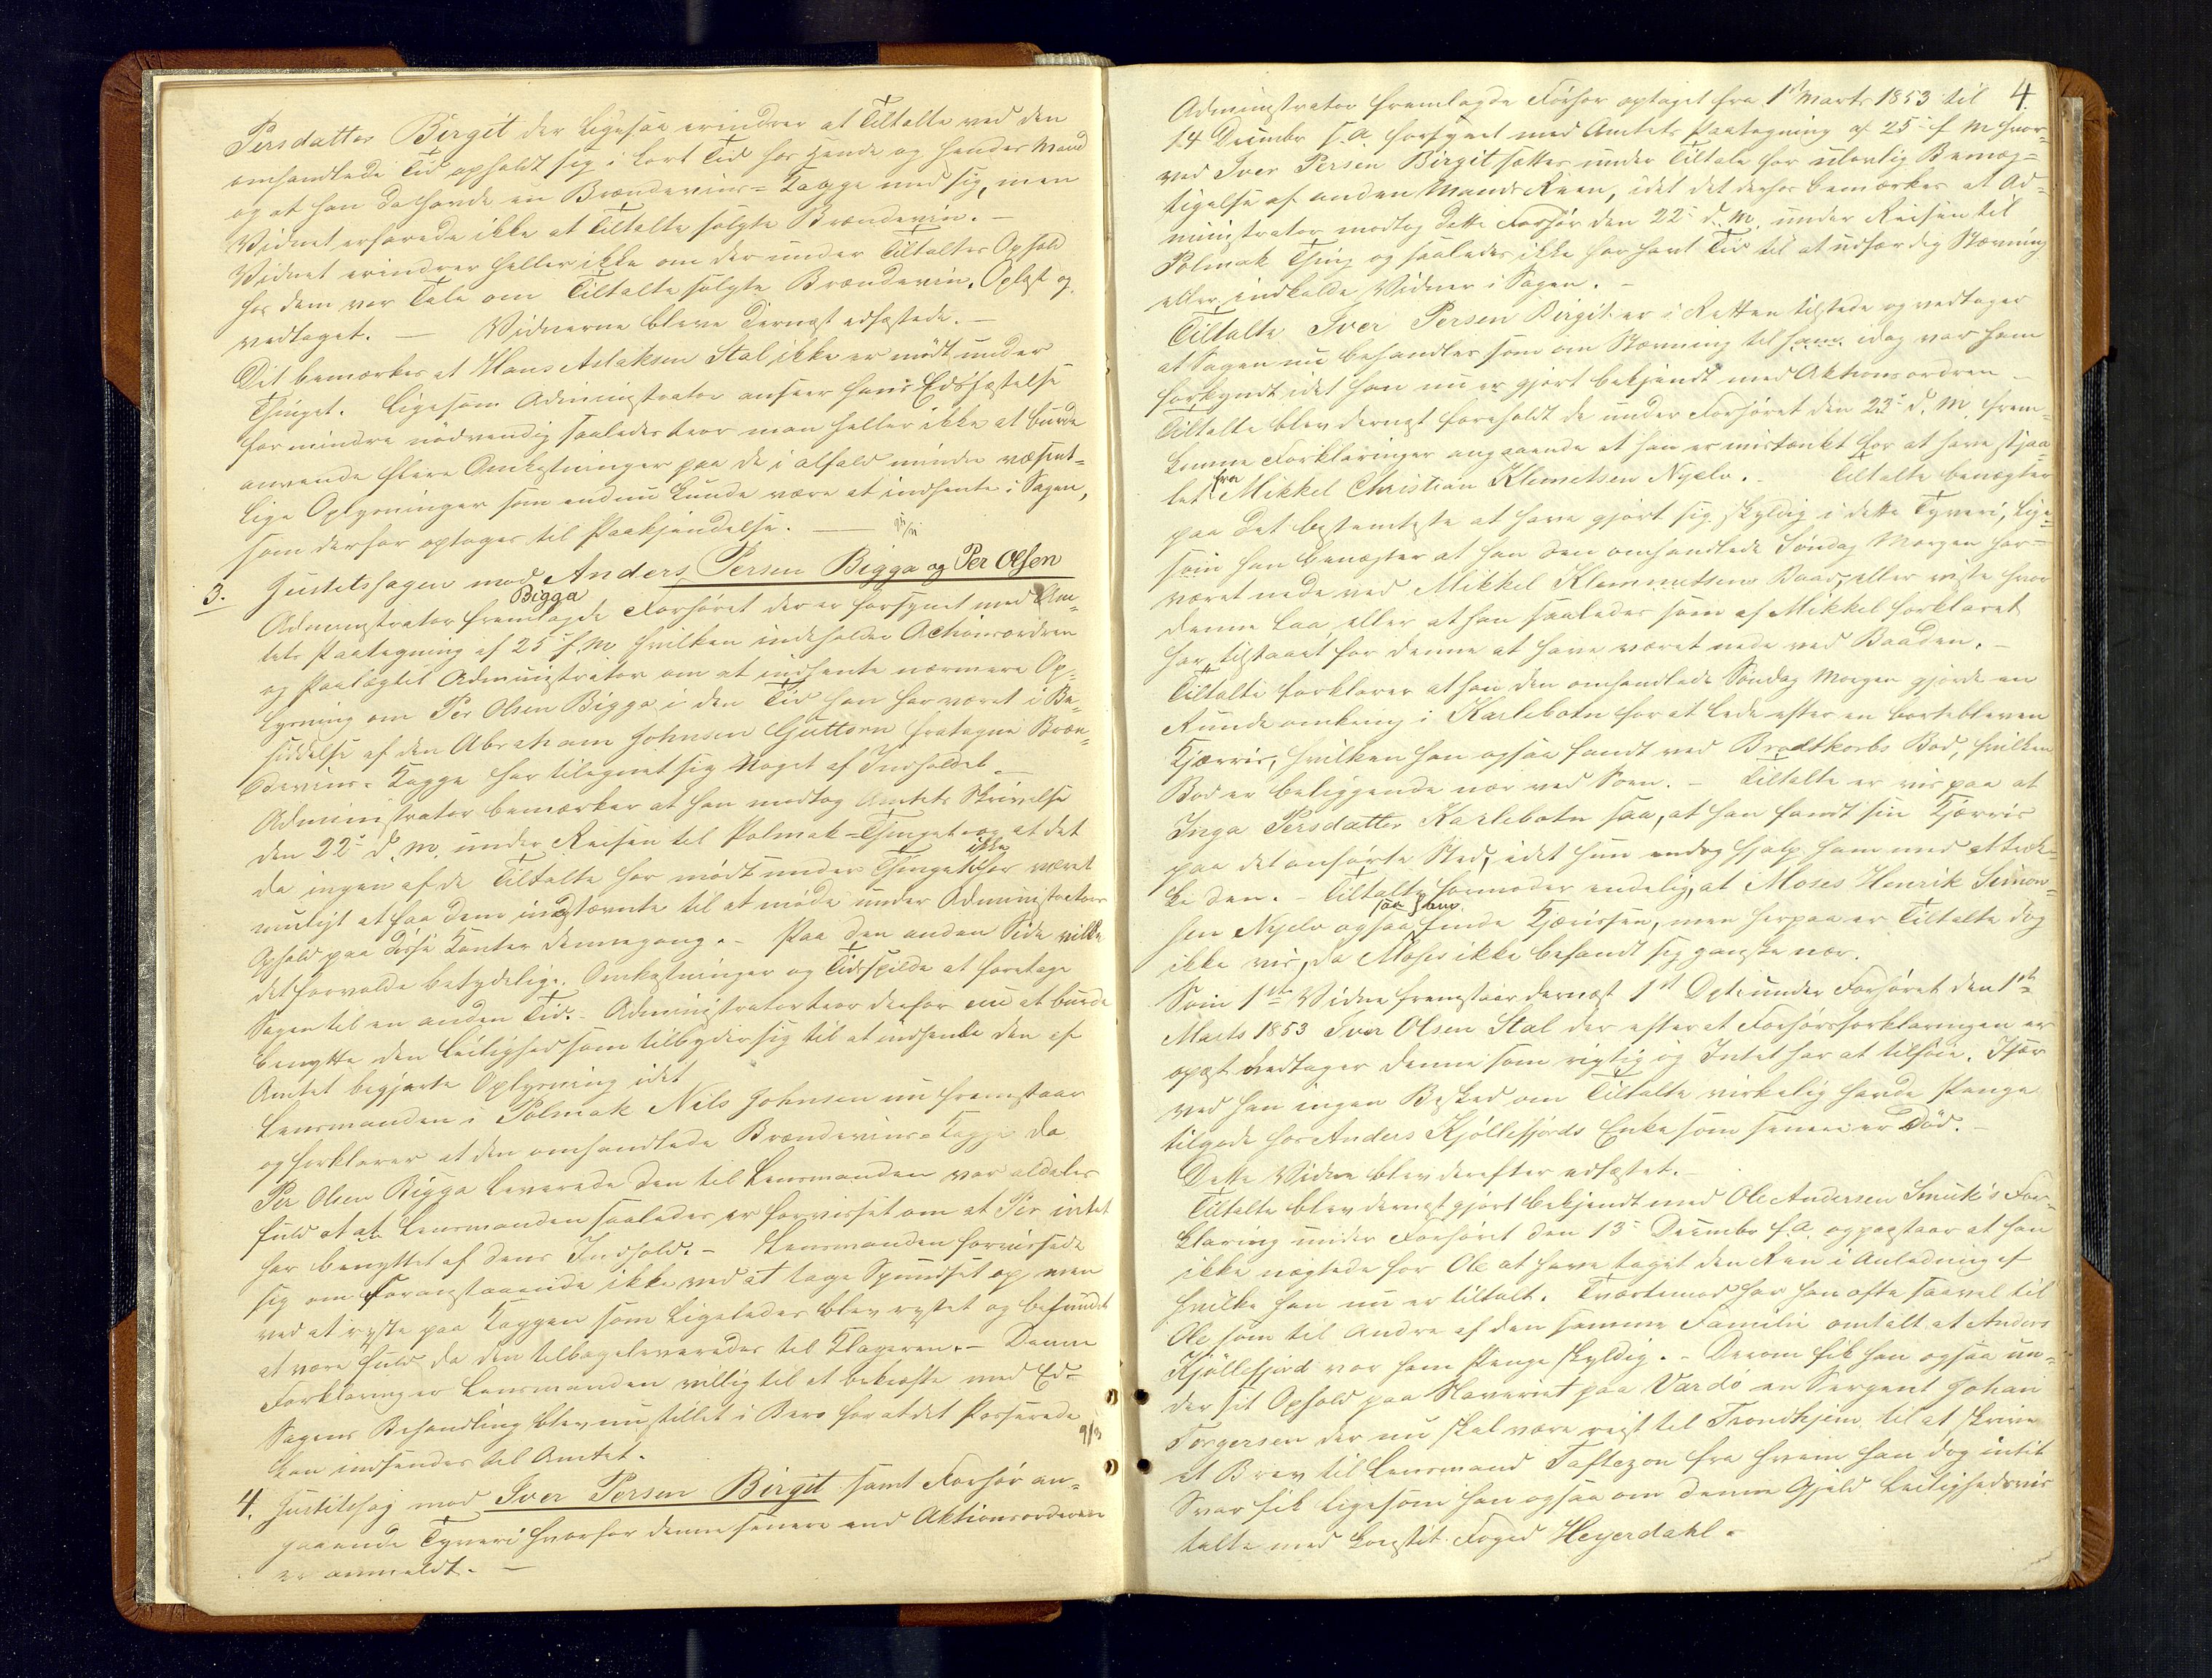 Persdatter Birgit der ligesaa erindrer at Tiltalte ved den
omhandlede Tid opholdt sig i kort Tid hos hende og hendes Mand
og at han da havde en Brændeviins-Kagge med sig, men
Vidnet erfarede ikke at Tiltalte solgte Brændevin. –
Vidnet erindrer heller ikke om der under Tiltaltes Ophold
hos dem var Tale om Tiltalte solgte Brændevin. Oplæst og
vedtaget. – Vidnerne bleve dernæst edfæstede. –
Det bemærkes at Hans Aslaksen Stal ikke er mødt under
Thinget. Ligesom Administrator anseer hans Edsfæstelse
for mindre nødvendig saaledes troer man heller ikke at burde
anvende flere Omkostninger paa de i alfald mindre væsent-
lige Oplysninger som endnu kunde være at indhente i Sagen,
som derfor optages til Paakjendelse. –
3. Justitssagen mod Anders Persen Bigga og Per Olsen
Bigga
Administrator fremlagde Forhøret der er forsynet med Am-
tets Paategning af 25 f. M. hvilken indeholder Actionsordren
og Paalæg til Administrator om at indhente nærmere Op-
lysning om Per Olsen Bigga i den Tid han har været i Be-
siddelse af den Abraham Johnsen Guttorm fratagne Bræn-
deviins-Kagge har tilegnet sig Noget af Indholdet –
Administrator bemærker at han modtog Amtets Skrivelse
den 22 d. M. under Reisen til Polmak-Thinget og at det
da ingen af de Tiltalte har mødt under Thinget ikke har været
muligt at faa dem indstævnte til at møde under Administrators
Ophold paa disse Kanter dennegang. – Paa den anden Side vilde
det forvolde betydelige Omkostninger og Tidsspilde at foretage
Sagen til en anden Tid. – Administrator troer derfor nu at burde
benytte den Leilighed som tilbyder sig til at indhente den af
Amtet begjærte Oplysning idet
Lensmanden i Polmak Nils Johnsen nu fremstaar
og forklarer at den omhandlede Brændeviins-Kagge da
Per Olsen Bigga leverede den til Lensmanden var aldeles
fuld at at Lensmanden saaledes er forvisset om at Per intet
har benyttet af dens Indhold. – Lensmanden forvissede
sig om Foranstaaende ikke ved at tage Spundset op men
ved at ryste paa Kaggen som ligeledes blev rystet og befundet
at være fuld, da den tilbageleveredes til Klageren. – Denne
Forklaring er Lensmanden villig til at bekræfte med Ed –
Sagens Behandling blev nu stillet i Bero for at det Passerede
kan indsendes til Amtet.
4. Justitssag mod Iver Persen Birgit samt Forhør an-
gaaende Tyveri hvorfor denne senere end Aktionsordren
er anmeldt. –
4
Administrator fremlagde Forhør optaget fra 1 Marts 1853 til
14 Decembr s. A. forsynet med Amtets Paategning af 25 f. M. hvor-
ved Iver Persen Birgit sættes under Tiltale for ulovlig Bemæg-
tigelse af anden Mands Reen, idet det derhos bemærkes at Ad-
ministrator modtog dette Forhør den 22 d. M. under Reisen til
Polmak Thing og saaledes ikke har havt Tid til at udfærdig Stævning
eller indkalde Vidner i Sagen. –
Tiltalte Iver Persen Birgit er i Retten tilstede og vedtager
at Sagen nu behandles som om Stævning til ham idag var ham
forkyndt idet han nu er gjort bekjendt med Aktionsordren –
Tiltalte blev dernæst foreholdt de under Forhøret den 23 d. M. frem-
komne Forklaringer angaaende at han er mistænkt for at have stjaa-
let fra Mikkel Christian Klemetsen Nyelv. – Tiltalte benægter
paa det bestemteste at have gjort sig skyldig i dette Tyveri, lige-
som han benægter at han den omhandlede Søndag Morgen har
været nede ved Mikkel Klemmetsens Baad, eller viste hvor
denne laa, eller at han saaledes som af Mikkel forklaret
har tilstaaet for denne at have været nede ved Baaden. –
Tiltalte forklarer at han den omhandlede Søndag Morgen gjorde en
Runde omkring i Karlebotn for at lede efter en bortebleven
Kjørris, hvilken han ogsaa fandt ved Brodtkorbs Bod, hvilken
Bod er beliggende nær ved Søen. – Tiltalte er vis paa at
Inga Persdatter Karlebotn saa, at han fandt sin Kjørris
paa det anførte Sted, idet hun endog hjalp ham med at træk-
ke den. – Tiltalte formoder endelig, at Moses Henrik Simon-
sen Nyelv ogsaa saa ham finde Kjørrisen, men herpaa er Tiltalte dog
ikke vis, da Moses ikke befandt sig ganske nær.
Som 1ste Vidne fremstaar dernæst 1st Dpt. under Forhøret den 1ste
Marts 1853 Iver Olsen Stal der efter at Forhørsforklaringen er
oplæst vedtager denne som rigtig og Intet har at tilføie. Især
ved han ingen Besked om Tiltalte virkelig havde Penge
tilgode hos Anders Kjøllefjords Enke som senere er Død. –
Dette Vidne blev derefter edfæstet. –
Tiltalte blev dernæst gjort bekjendt med Ole Andersen Smuk's For-
klaring under Forhøret den 13 Decembr f. A. og paastaar at han
ikke nægtede for Ole at have taget den Ren i Anledning af
hvilke han nu er tiltalt. Tværtimod har han ofte saavel til
Ole som til Andre af den samme Familie omtalt at Anders
Kjøllefjord var ham Penge skyldig. – Derom fik han ogsaa un-
der sit Ophold paa Slaveriet paa Vardø en Sergent Johan
Torgersen der nu skal være reist til Trondhjem til at skrive
et Brev til Lensmand Taftezon fra hvem han dog intet
Svar fik ligesom han ogsaa om denne Gjæld Leilighedsvis
talte med Const. Foged Heyerdahl. –